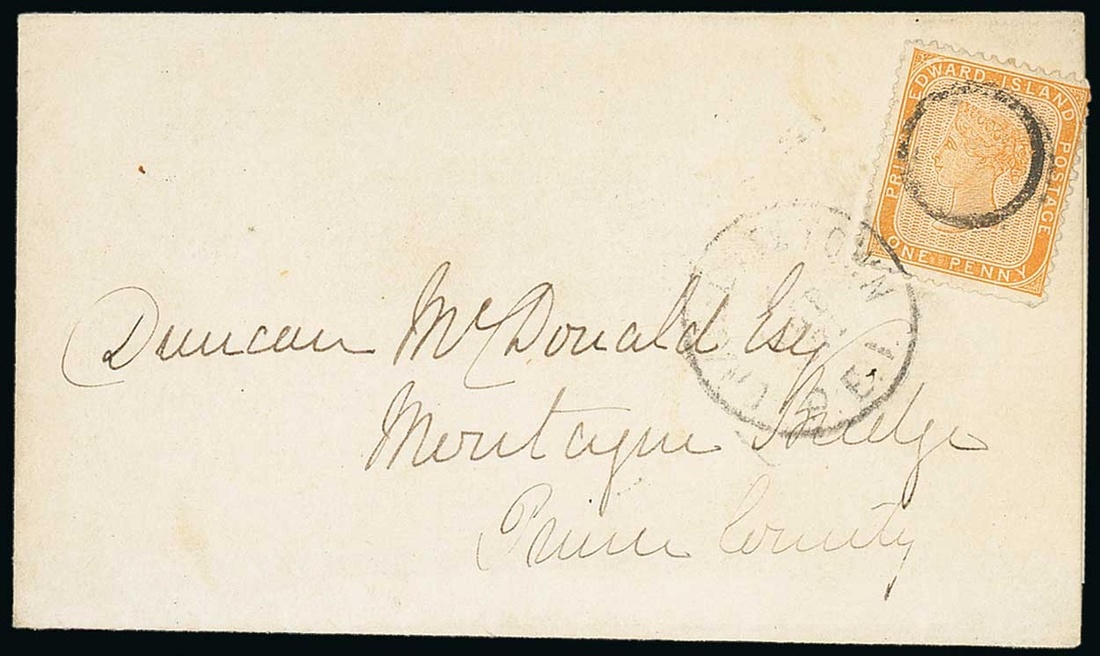 PRINCE EDWARD ISLAND POSTAGE
ONE PENNY
P.E.I.
Duncan McDonald Esq
Montague Bridge
Prince County